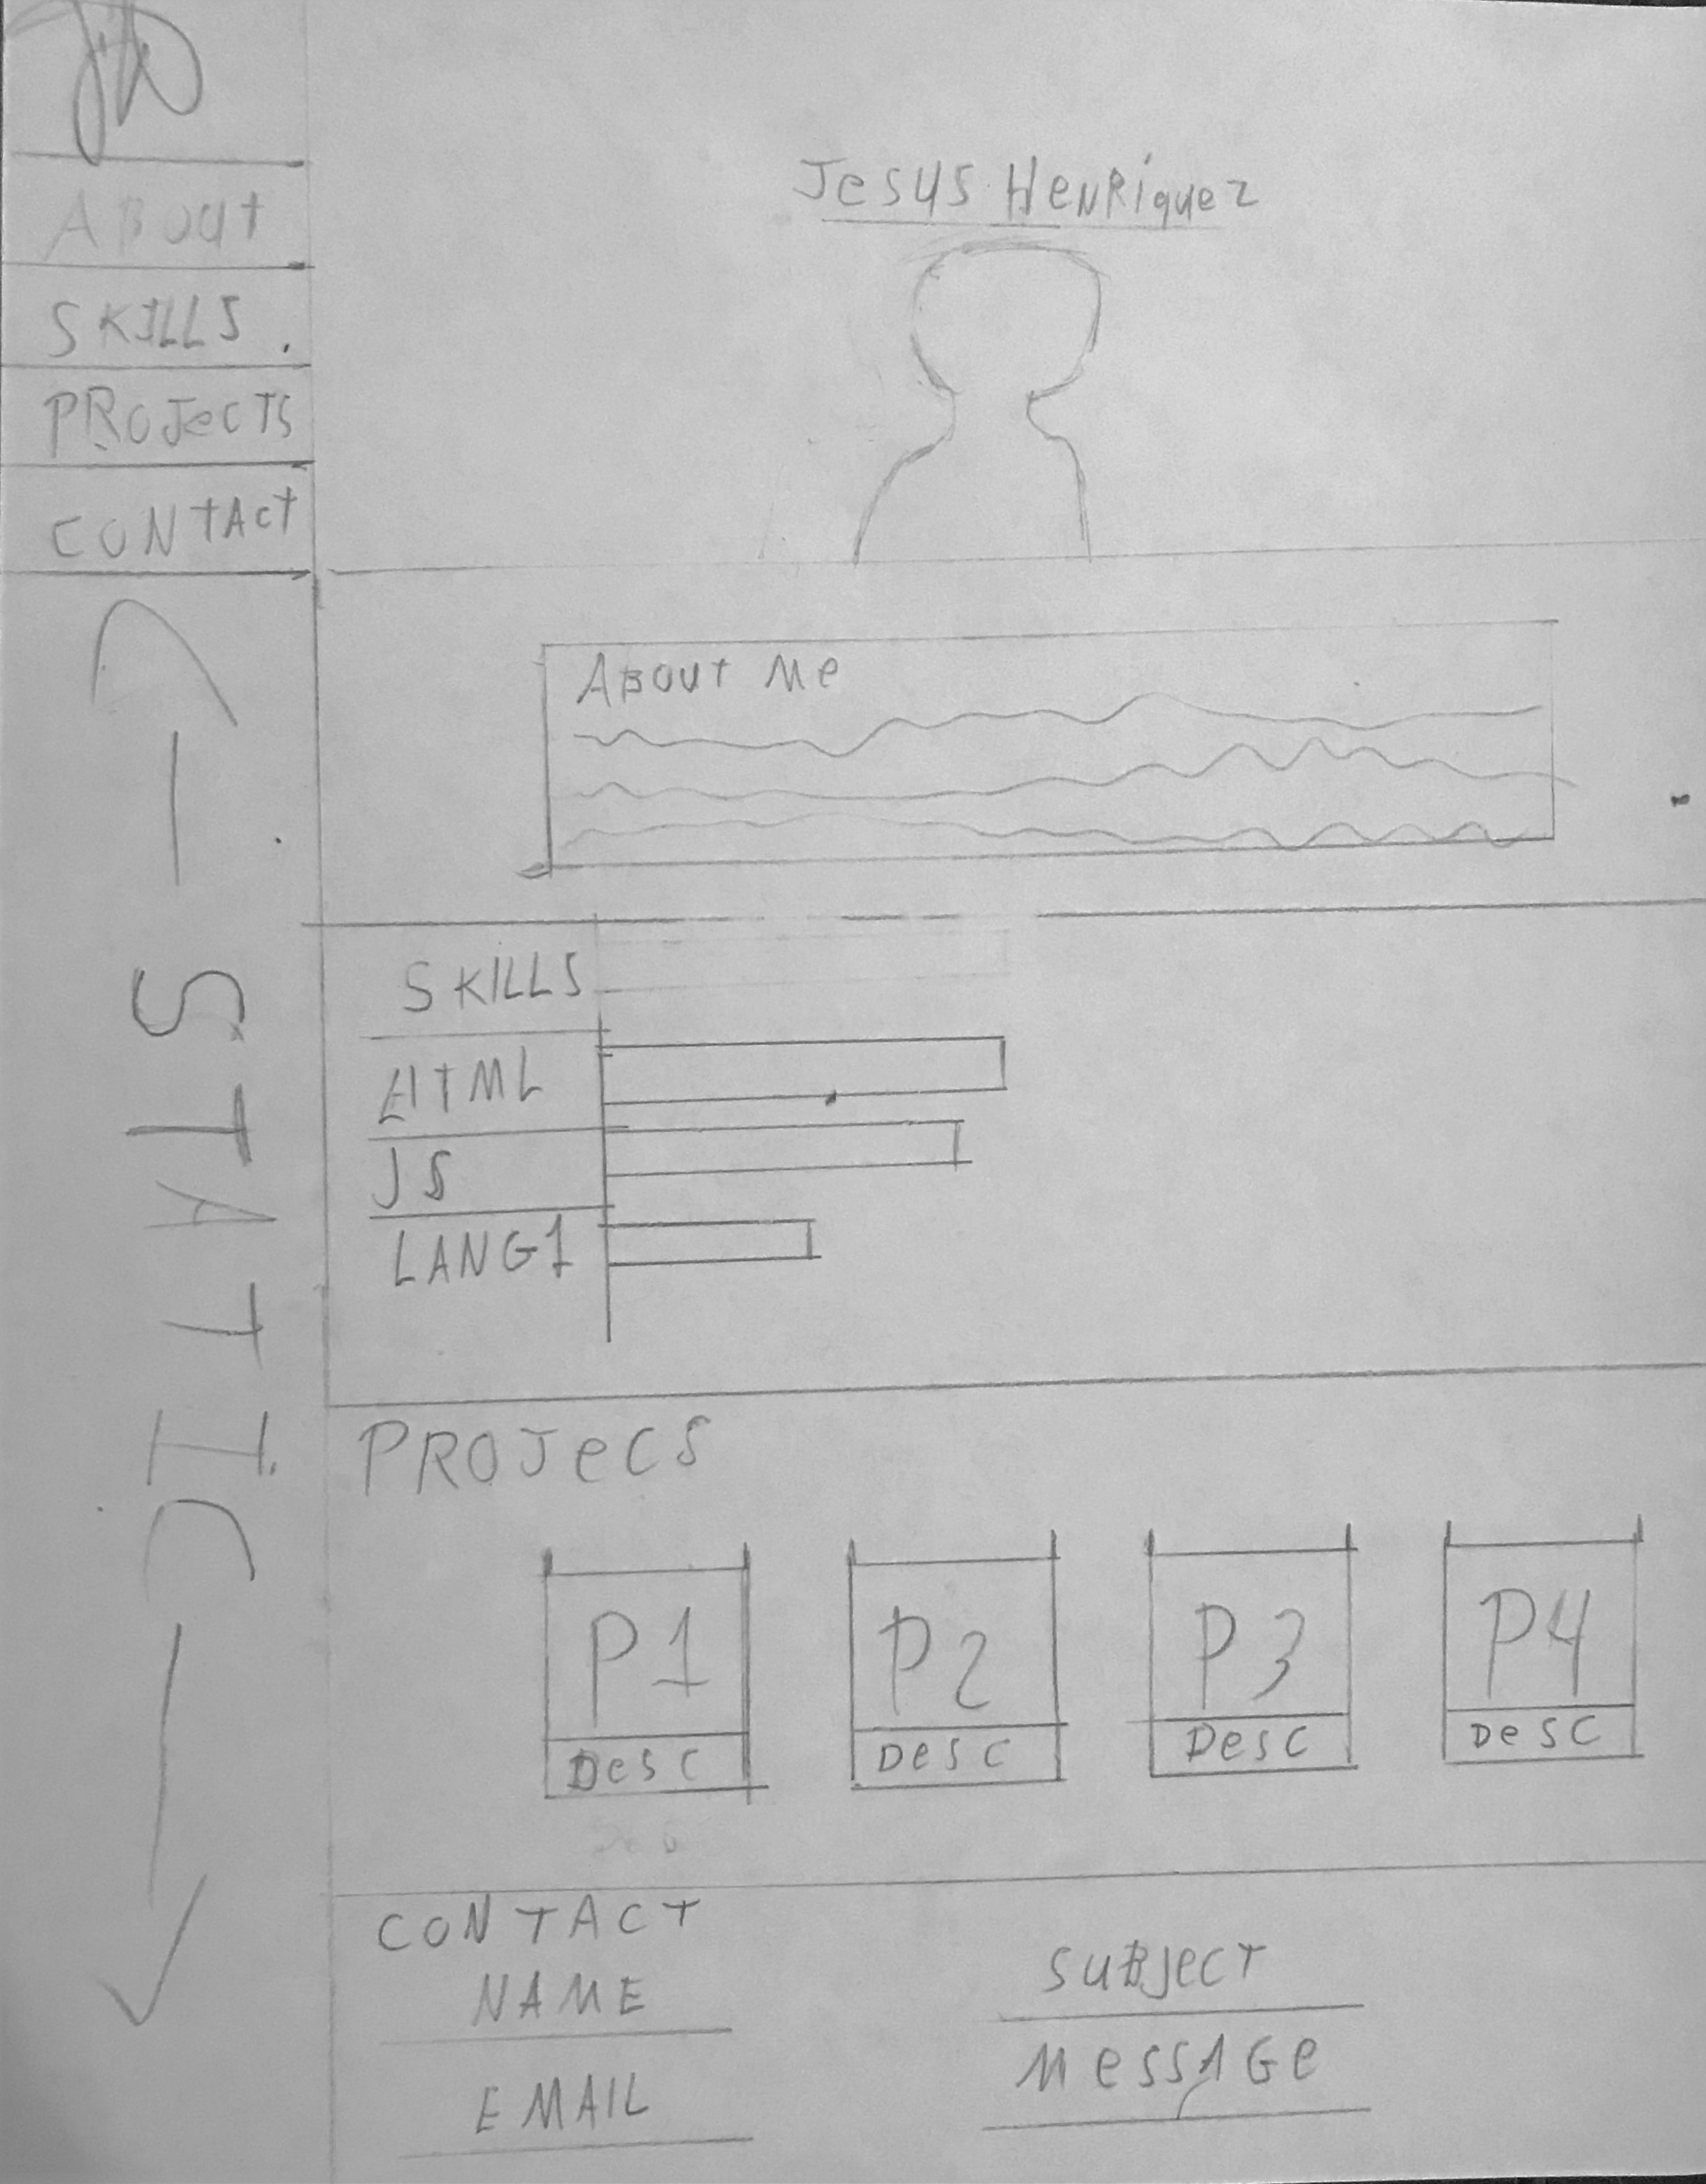 JH
ABout
SKILLS
PROJecTS
CONtAct
STATIC
Jesus Henríquez
ABout Me
SKILLS
HTML
JS
LANG1
PROJecS
P1
P2
P3
P4
Desc
Desc
Desc
Desc
CONTACT
NAME
SUBJecT
EMAIL
MessAGe